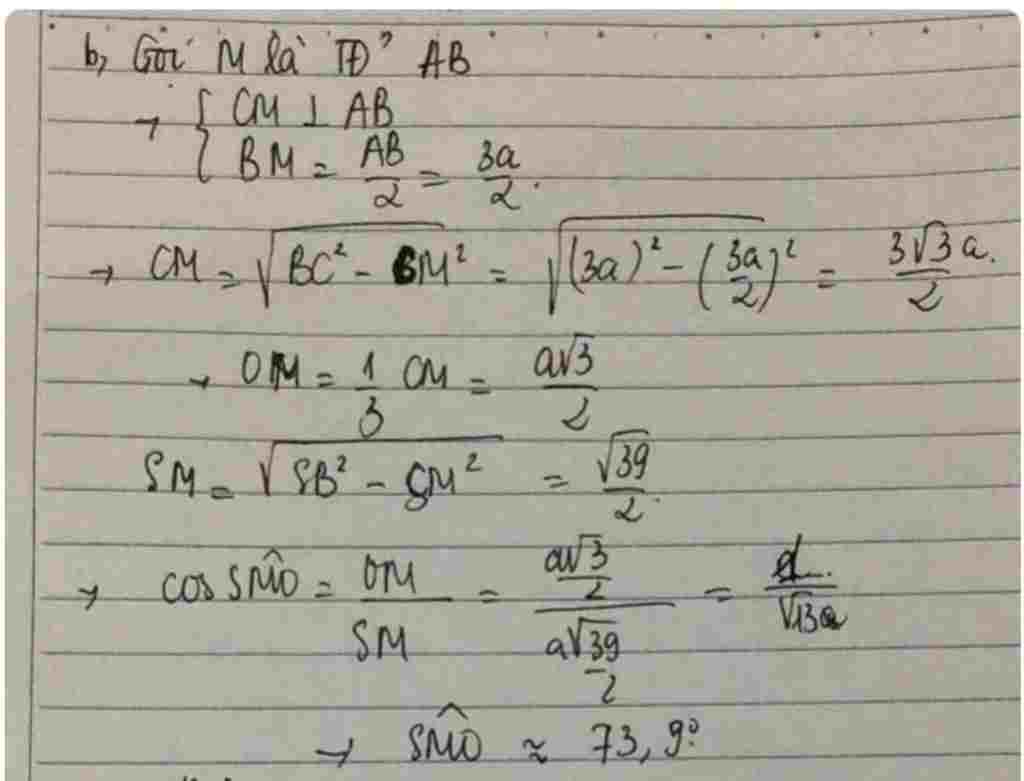 b, Gọi M là TĐ AB
→ { CM ⊥ AB
BM = AB/2 = 3a/2.
→ CM = √(BC² - BM²) = √((3a)² - (3a/2)²) = 3√3a/2.
→ OM = 1/3 CM = a√3/2
SM = √(SB² - BM²) = √39/2.
→ cos SM̂O = OM/SM = (a√3/2)/(a√39/2) = 1/√13
→ SM̂O ≈ 73,9°